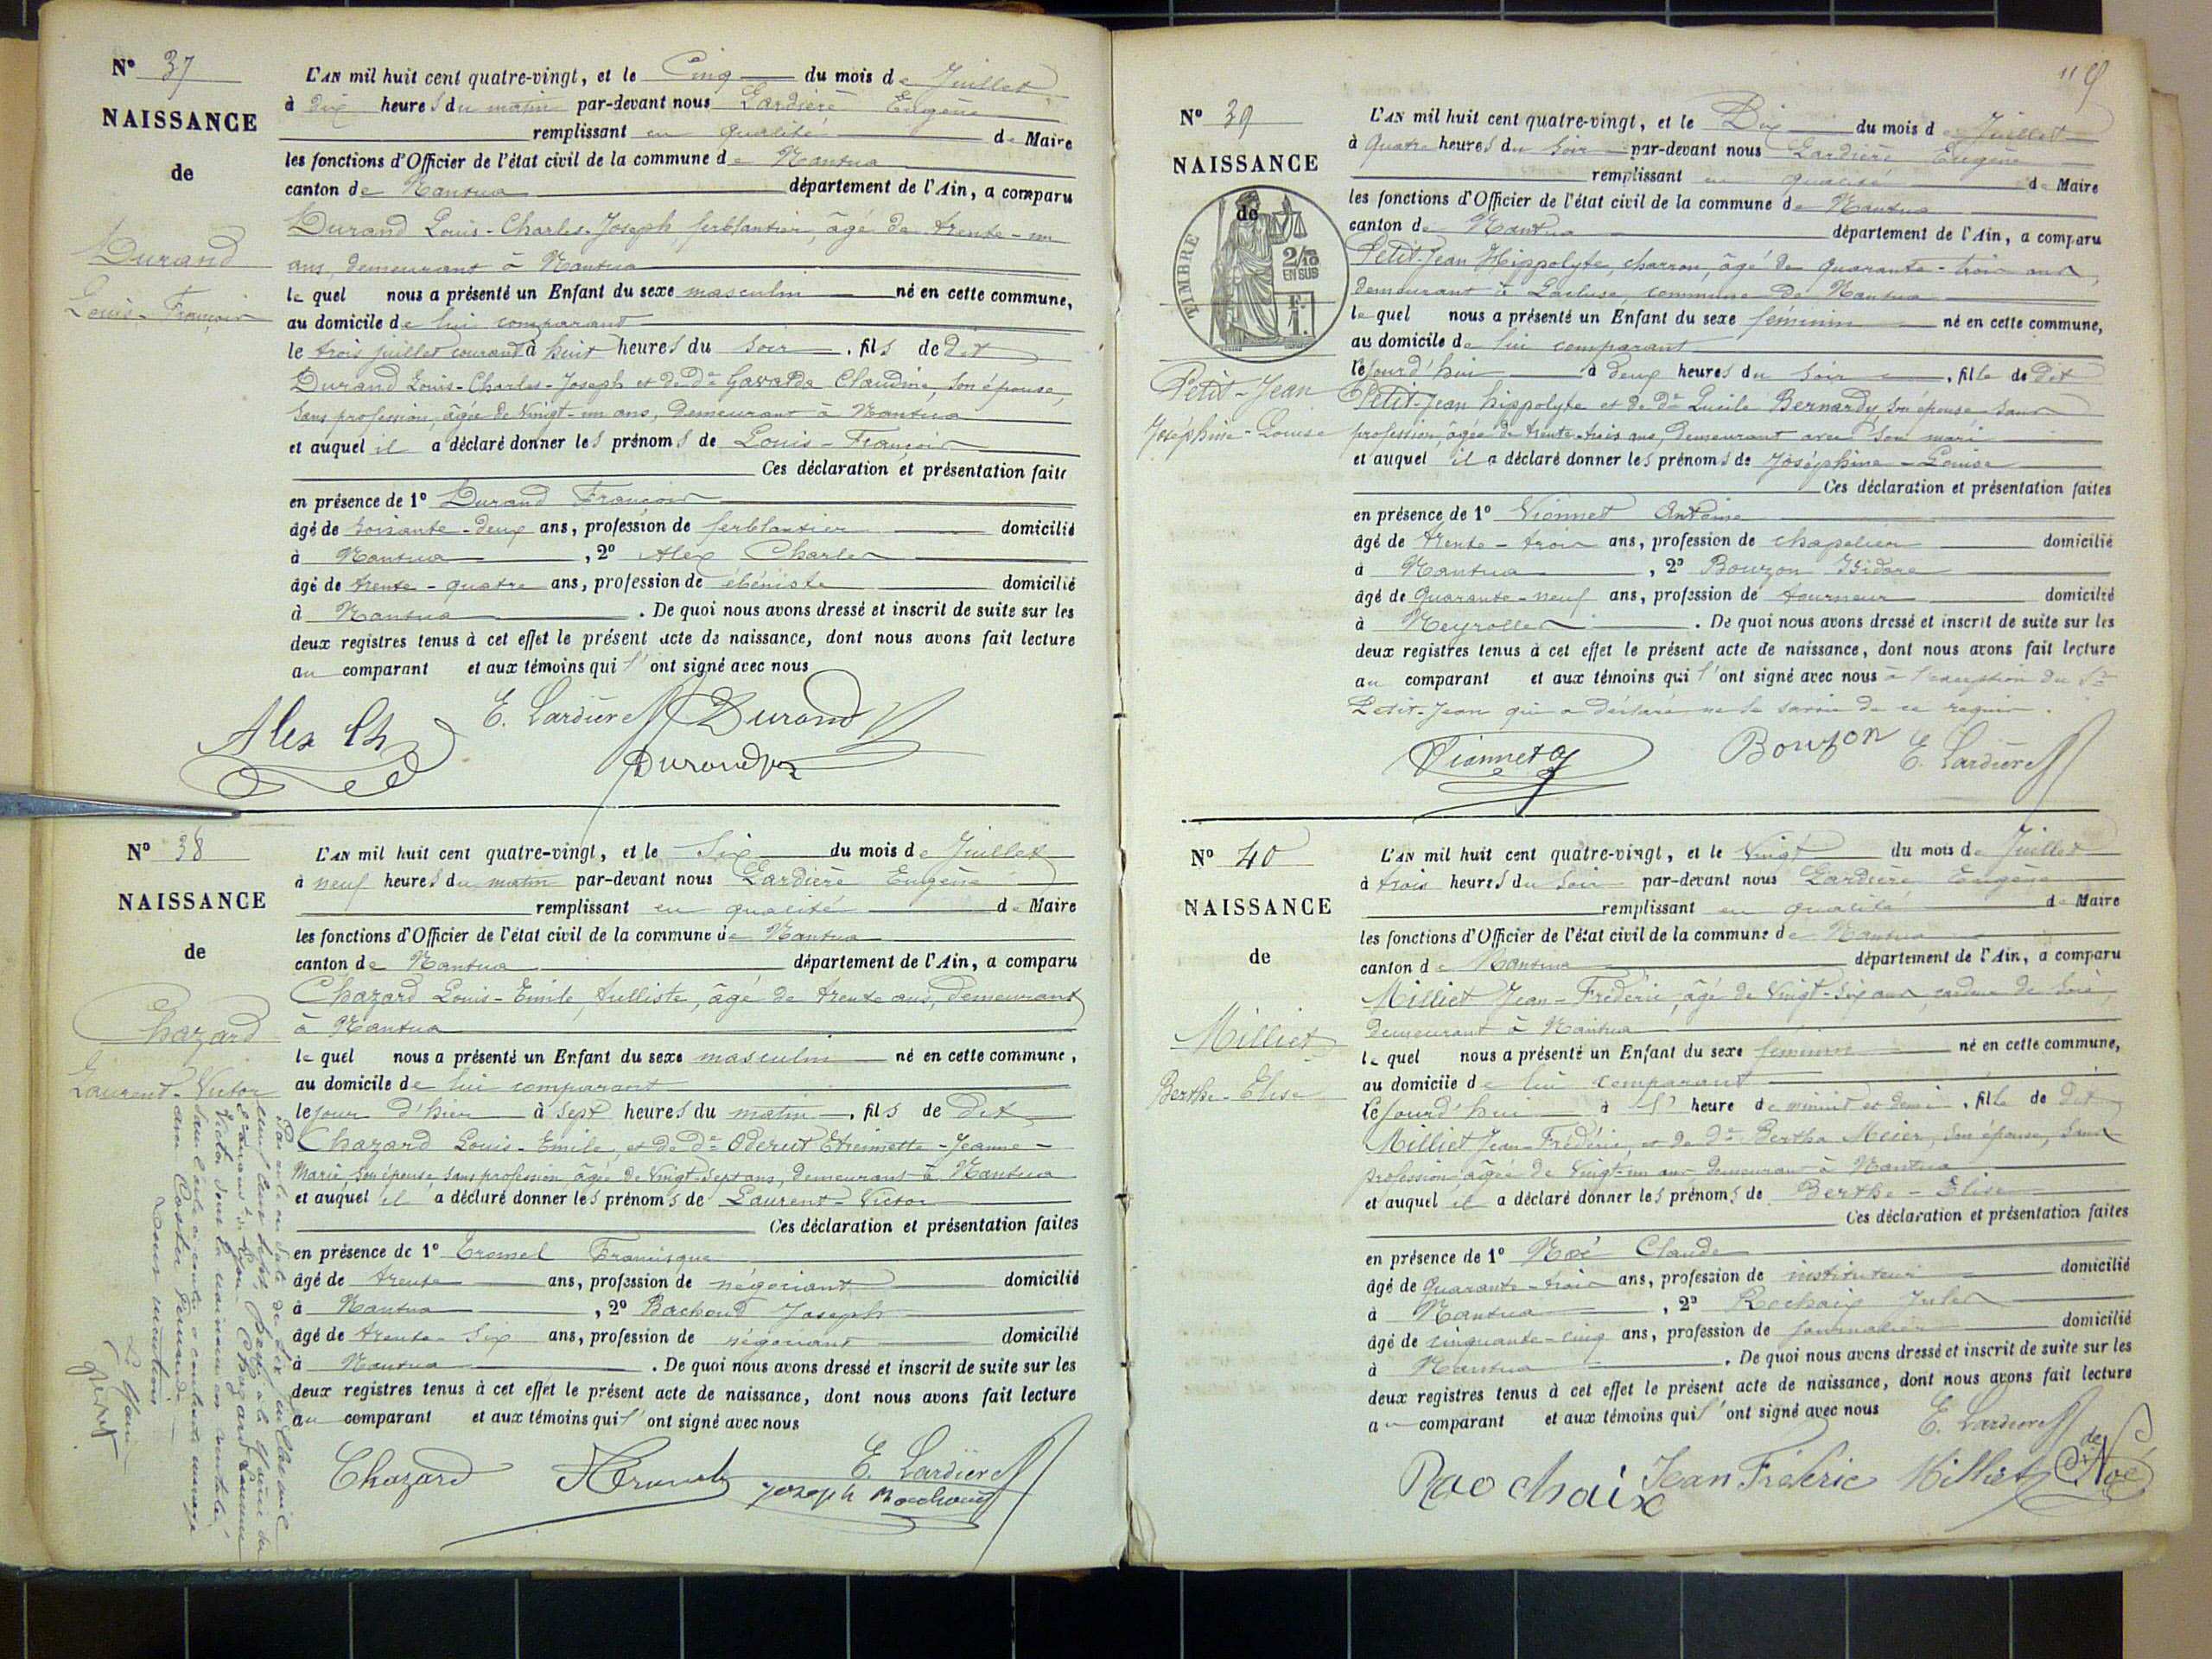 N° 37
NAISSANCE
de
Durand
Louis-François
L'AN mil huit cent quatre-vingt, et le Cinq du mois de Juillet
à dix heures du matin par-devant nous Lardière Eugène
remplissant en qualité de Maire
les fonctions d'Officier de l'état civil de la commune de Nantua
canton de Nantua département de l'Ain, a comparu
Durand Louis-Charles-Joseph, ferblantier, âgé de trente-un
ans, demeurant à Nantua
lequel nous a présenté un Enfant du sexe masculin né en cette commune,
au domicile de lui comparant
le trois juillet courant à huit heures du soir, fils de dit
Durand Louis-Charles-Joseph et de De Gavalda Claudine, son épouse,
sans profession, âgée de vingt-un ans, demeurant à Nantua
et auquel il a déclaré donner les prénoms de Louis-François
Ces déclaration et présentation faites
en présence de 1° Durand François
âgé de soixante-deux ans, profession de ferblantier domicilié
à Nantua, 2° Alex Charles
âgé de trente-quatre ans, profession de ébéniste domicilié
à Nantua. De quoi nous avons dressé et inscrit de suite sur les
deux registres tenus à cet effet le présent acte de naissance, dont nous avons fait lecture
au comparant et aux témoins qui l'ont signé avec nous
Alex Ch E. Lardière Durand
Durand
N° 38
NAISSANCE
de
Chazard
Laurent-Victor
L'AN mil huit cent quatre-vingt, et le Six du mois de Juillet
à neuf heures du matin par-devant nous Lardière Eugène
remplissant en qualité de Maire
les fonctions d'Officier de l'état civil de la commune de Nantua
canton de Nantua département de l'Ain, a comparu
Chazard Louis-Emile, tulliste, âgé de trente ans, demeurant
à Nantua
lequel nous a présenté un Enfant du sexe masculin né en cette commune,
au domicile de lui comparant
le jour d'hier à sept heures du matin, fils de dit
Chazard Louis-Emile, et de De Oderut Etiennette-Jeanne-
Marie, son épouse, sans profession, âgée de vingt-sept ans, demeurant à Nantua
et auquel il a déclaré donner les prénoms de Laurent-Victor
Ces déclaration et présentation faites
en présence de 1° Francisque
âgé de trente ans, profession de négociant domicilié
à Nantua, 2° Bachoud Joseph
âgé de trente-six ans, profession de négociant domicilié
à Nantua. De quoi nous avons dressé et inscrit de suite sur les
deux registres tenus à cet effet le présent acte de naissance, dont nous avons fait lecture
au comparant et aux témoins qui l'ont signé avec nous
Chazard E. Lardière
Joseph Bachoud
Par acte en date du
mil neuf cent sept, à la Mairie du
de Lyon, Chazard Laurent
Victor dont la naissance est
dans l'acte ci-contre a contracté mariage
avec
Pour mention
Le Maire
119
N° 39
NAISSANCE
de
TIMBRE
2/10
EN SUS
F.
1
Petit-Jean
Joséphine-Louise
L'AN mil huit cent quatre-vingt, et le Dix du mois de Juillet
à Quatre heures du soir par-devant nous Lardière Eugène
remplissant en qualité de Maire
les fonctions d'Officier de l'état civil de la commune de Nantua
canton de Nantua département de l'Ain, a comparu
Petit-Jean Hippolyte, charron, âgé de quarante-trois ans,
demeurant à Lacluse, commune de Nantua
lequel nous a présenté un Enfant du sexe féminin né en cette commune,
au domicile de lui comparant
Cejourd'hui à deux heures du soir, fille de dit
Petit-Jean hippolyte et de De Lucile Bernardy, son épouse sans
profession, âgée de trente-trois ans, demeurant avec son mari
et auquel il a déclaré donner les prénoms de Joséphine-Louise
Ces déclaration et présentation faites
en présence de 1° Vionnet Antoine
âgé de trente-trois ans, profession de chapelier domicilié
à Nantua, 2° Bouzon Isidore
âgé de Quarante-neuf ans, profession de tourneur domicilié
à Neyrolles. De quoi nous avons dressé et inscrit de suite sur les
deux registres tenus à cet effet le présent acte de naissance, dont nous avons fait lecture
au comparant et aux témoins qui l'ont signé avec nous à l'exception du Sr
Petit-Jean qui a déclaré ne le savoir de ce requis.
Vionnet a Bouzon E. Lardière
N° 40
NAISSANCE
de
Milliet
Berthe-Elise
L'AN mil huit cent quatre-vingt, et le Vingt du mois de Juillet
à trois heures du soir par-devant nous Lardière Eugène
remplissant en qualité de Maire
les fonctions d'Officier de l'état civil de la commune de Nantua
canton de Nantua département de l'Ain, a comparu
Milliet Jean-Frédéric, âgé de vingt-six ans, cardeur de soie,
demeurant à Nantua
lequel nous a présenté un Enfant du sexe féminin né en cette commune,
au domicile de lui comparant
Cejourd'hui à l'heure de minuit et demi, fille de dit
Milliet Jean-Frédéric, et de De Bertha Meier, son épouse, sans
profession, âgée de vingt-un ans demeurant à Nantua
et auquel il a déclaré donner les prénoms de Berthe-Elise
Ces déclaration et présentation faites
en présence de 1° Noé Claude
âgé de Quarante-trois ans, profession de instituteur domicilié
à Nantua, 2° Rochaix Jules
âgé de cinquante-cinq ans, profession de journalier domicilié
à Nantua. De quoi nous avons dressé et inscrit de suite sur les
deux registres tenus à cet effet le présent acte de naissance, dont nous avons fait lecture
au comparant et aux témoins qui l'ont signé avec nous
E. Lardière
Raochaix Jean Fréféric Milliet Noé